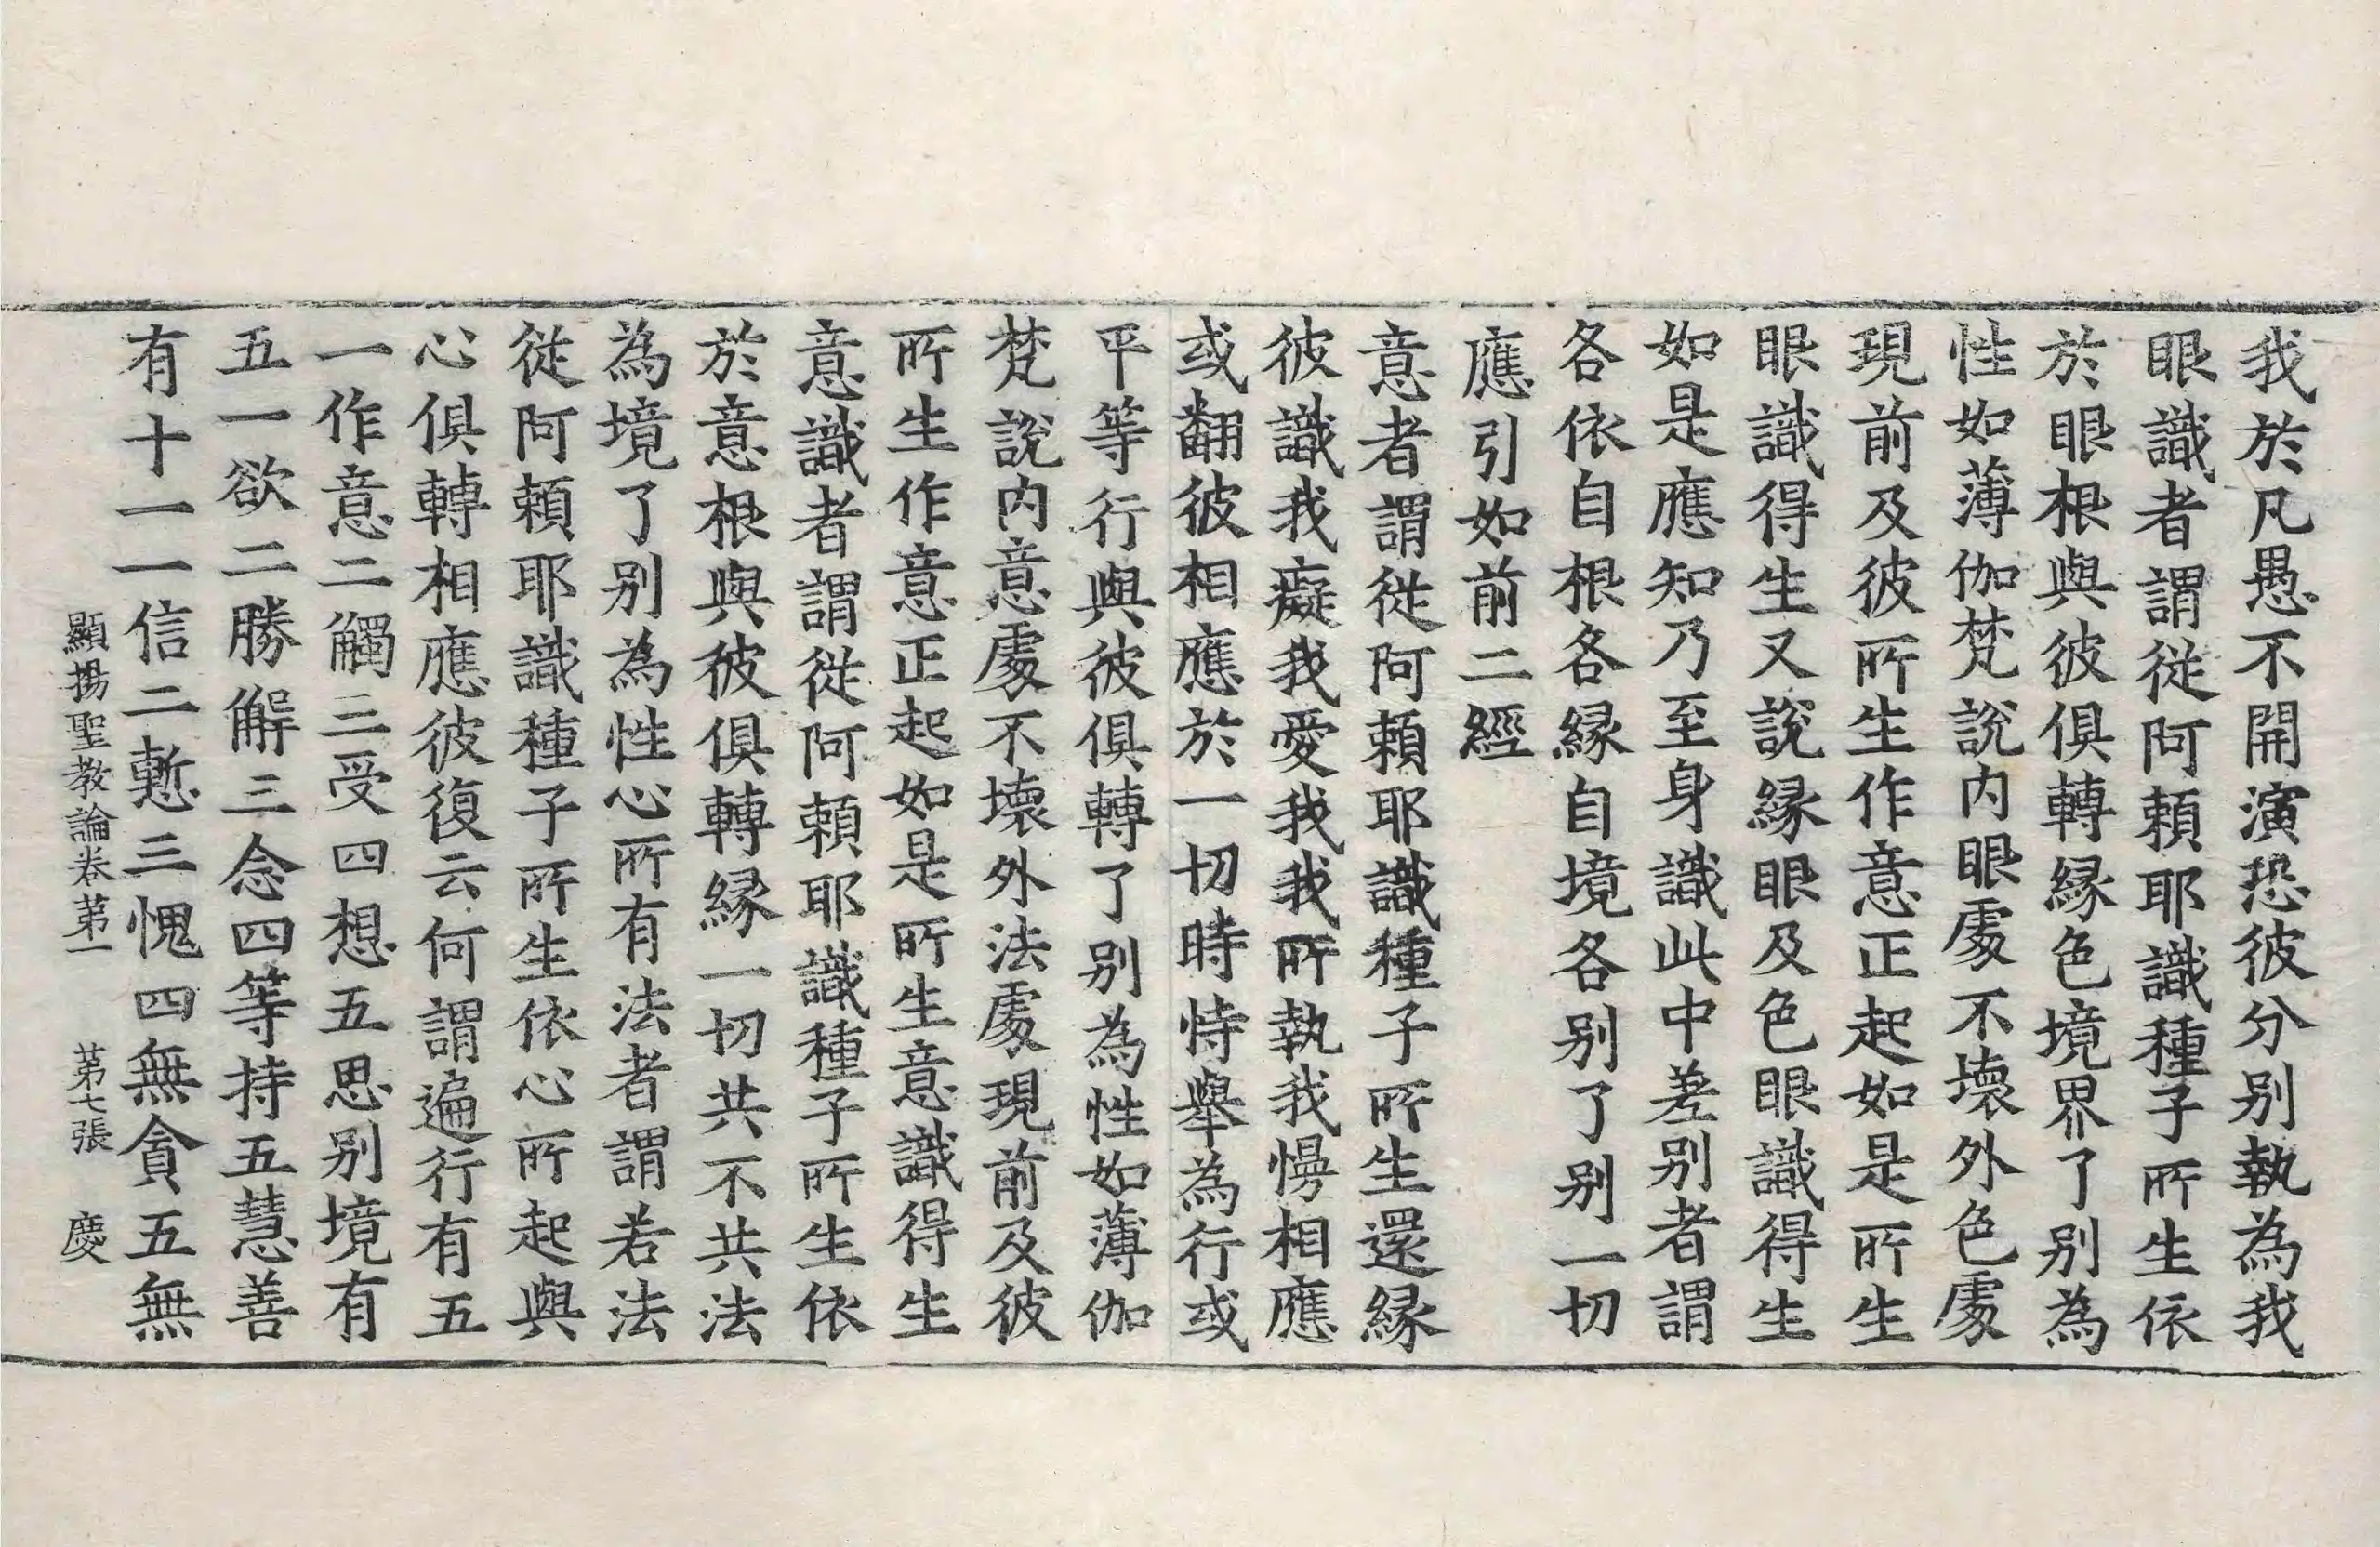 我於凡愚不開演恐彼分别執為我
眼識者謂從阿頼耶識種子所生依
於眼根與彼俱轉縁色境界了别為
性如薄伽梵說内眼處不壞外色處
現前及彼所生作意正起如是所生
眼識得生又說縁眼及色眼識得生
如是應知乃至身識此中差别者謂
各依自根各縁自境各别了别一切
應引如前二經
意者謂從阿頼耶識種子所生還縁
彼識我癡我愛我我所執我慢相應
或翻彼相應於一切時恃舉為行或
平等行與彼俱轉了别為性如薄伽
梵說内意處不壞外法處現前及彼
所生作意正起如是所生意識得生
意識者謂從阿頼耶識種子所生依
於意根與彼俱轉縁一切共不共法
為境了别為性心所有法者謂若法
從阿頼耶識種子所生依心所起與
心俱轉相應彼復云何謂遍行有五
一作意二觸三受四想五思别境有
五一欲二勝解三念四等持五慧善
有十一一信二慙三愧四無貪五無
顯揚聖教論卷第一　第七張　慶